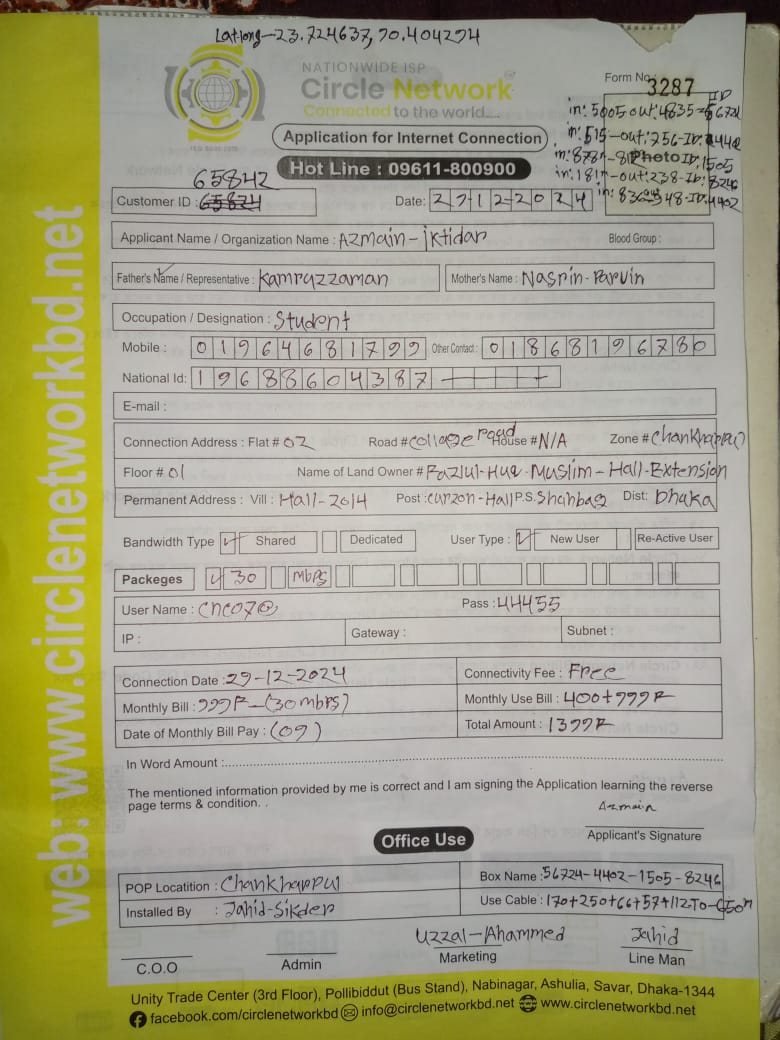 Lat-long-23.724637, 90.404294
NATIONWIDE ISP
Circle Network
Connected to the world....
ISO 9001:2015
Form No. 3287
Application for Internet Connection
Hot Line : 09611-800900
in: 5005 out: 4835 = ID 56724
in: 515-out: 756-ID: 4402
in: 878 Photo ID: 1505
in: 181 out: 238-ID: 8246
in: 836 out 48-ID: 4402
65842
Customer ID : 65824
Date: 29122024
Applicant Name / Organization Name : Azmain-iktidar Blood Group :
Father's Name / Representative : Kamruzzaman Mother's Name : Nasrin-Parvin
Occupation / Designation : Student
Mobile : 01964681799 Other Contact : 01868196780
National Id: 19688604387
E-mail :
Connection Address : Flat # 02 Road # Collage road House # N/A Zone # Chankharpul
Floor # 01 Name of Land Owner # Fazlul-Huq-Muslim-Hall-Extension
Permanent Address : Vill : Hall-2014 Post : Curzon-Hall P.S. Shahbag Dist: Dhaka
Bandwidth Type Shared Dedicated User Type : New User Re-Active User
Packeges 30 mbps
User Name : cnc07@ Pass : 44455
IP : Gateway : Subnet :
Connection Date : 29-12-2024 Connectivity Fee : Free
Monthly Bill : 999৳-(30mbps) Monthly Use Bill : 400+999৳
Date of Monthly Bill Pay : (09) Total Amount : 1399৳
In Word Amount :
The mentioned information provided by me is correct and I am signing the Application learning the reverse
page terms & condition. .
Azmain
Applicant's Signature
Office Use
POP Locatition : Chankharpul Box Name : 56724-4402-1505-8246
Installed By : Jahid-Sikder Use Cable : 170+250+66+57+112-TO-650m
Uzzal-Ahammed Jahid
C.O.O Admin Marketing Line Man
Unity Trade Center (3rd Floor), Pollibiddut (Bus Stand), Nabinagar, Ashulia, Savar, Dhaka-1344
facebook.com/circlenetworkbd info@circlenetworkbd.net www.circlenetworkbd.net
web: www.circlenetworkbd.net